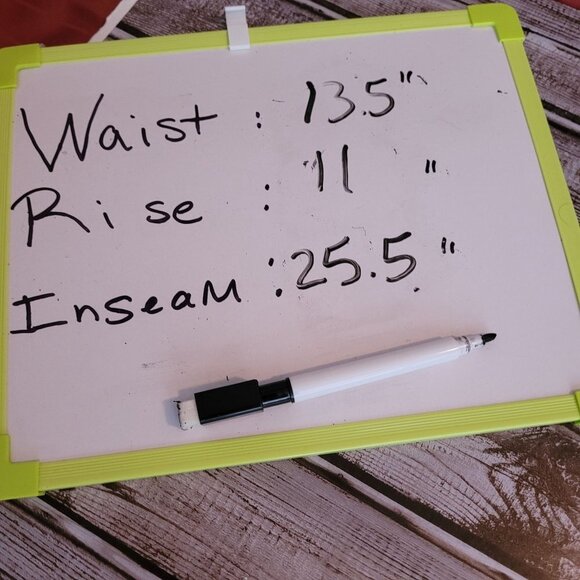 Waist : 13.5"
Rise : 11 "
Inseam : 25.5 "